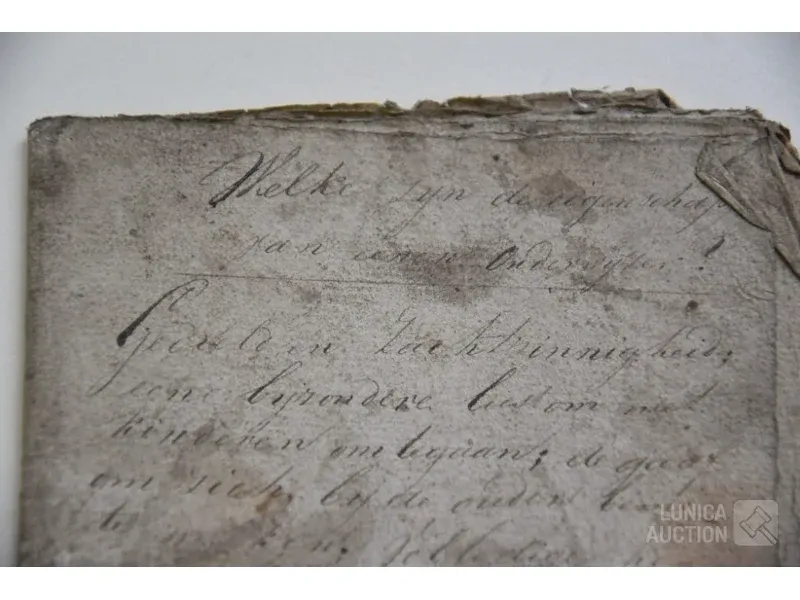 Welke zyn de eigenschap
van eenen Onderwyzer?
Geduld en Zachtzinnigheid,
eene byzondere lust om met
kinderen omtegaan; de gaaf
om zich by de ouders
te
LUNICA
AUCTION